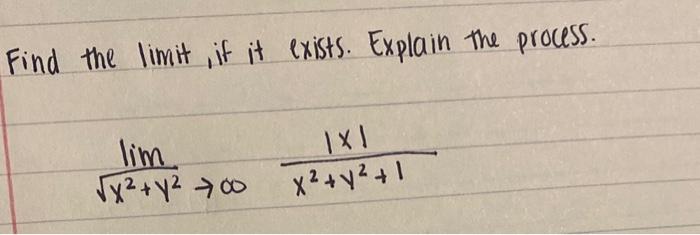 Find the limit, if it exists. Explain the process.
lim |x|
√x²+y² → ∞ x²+y²+1